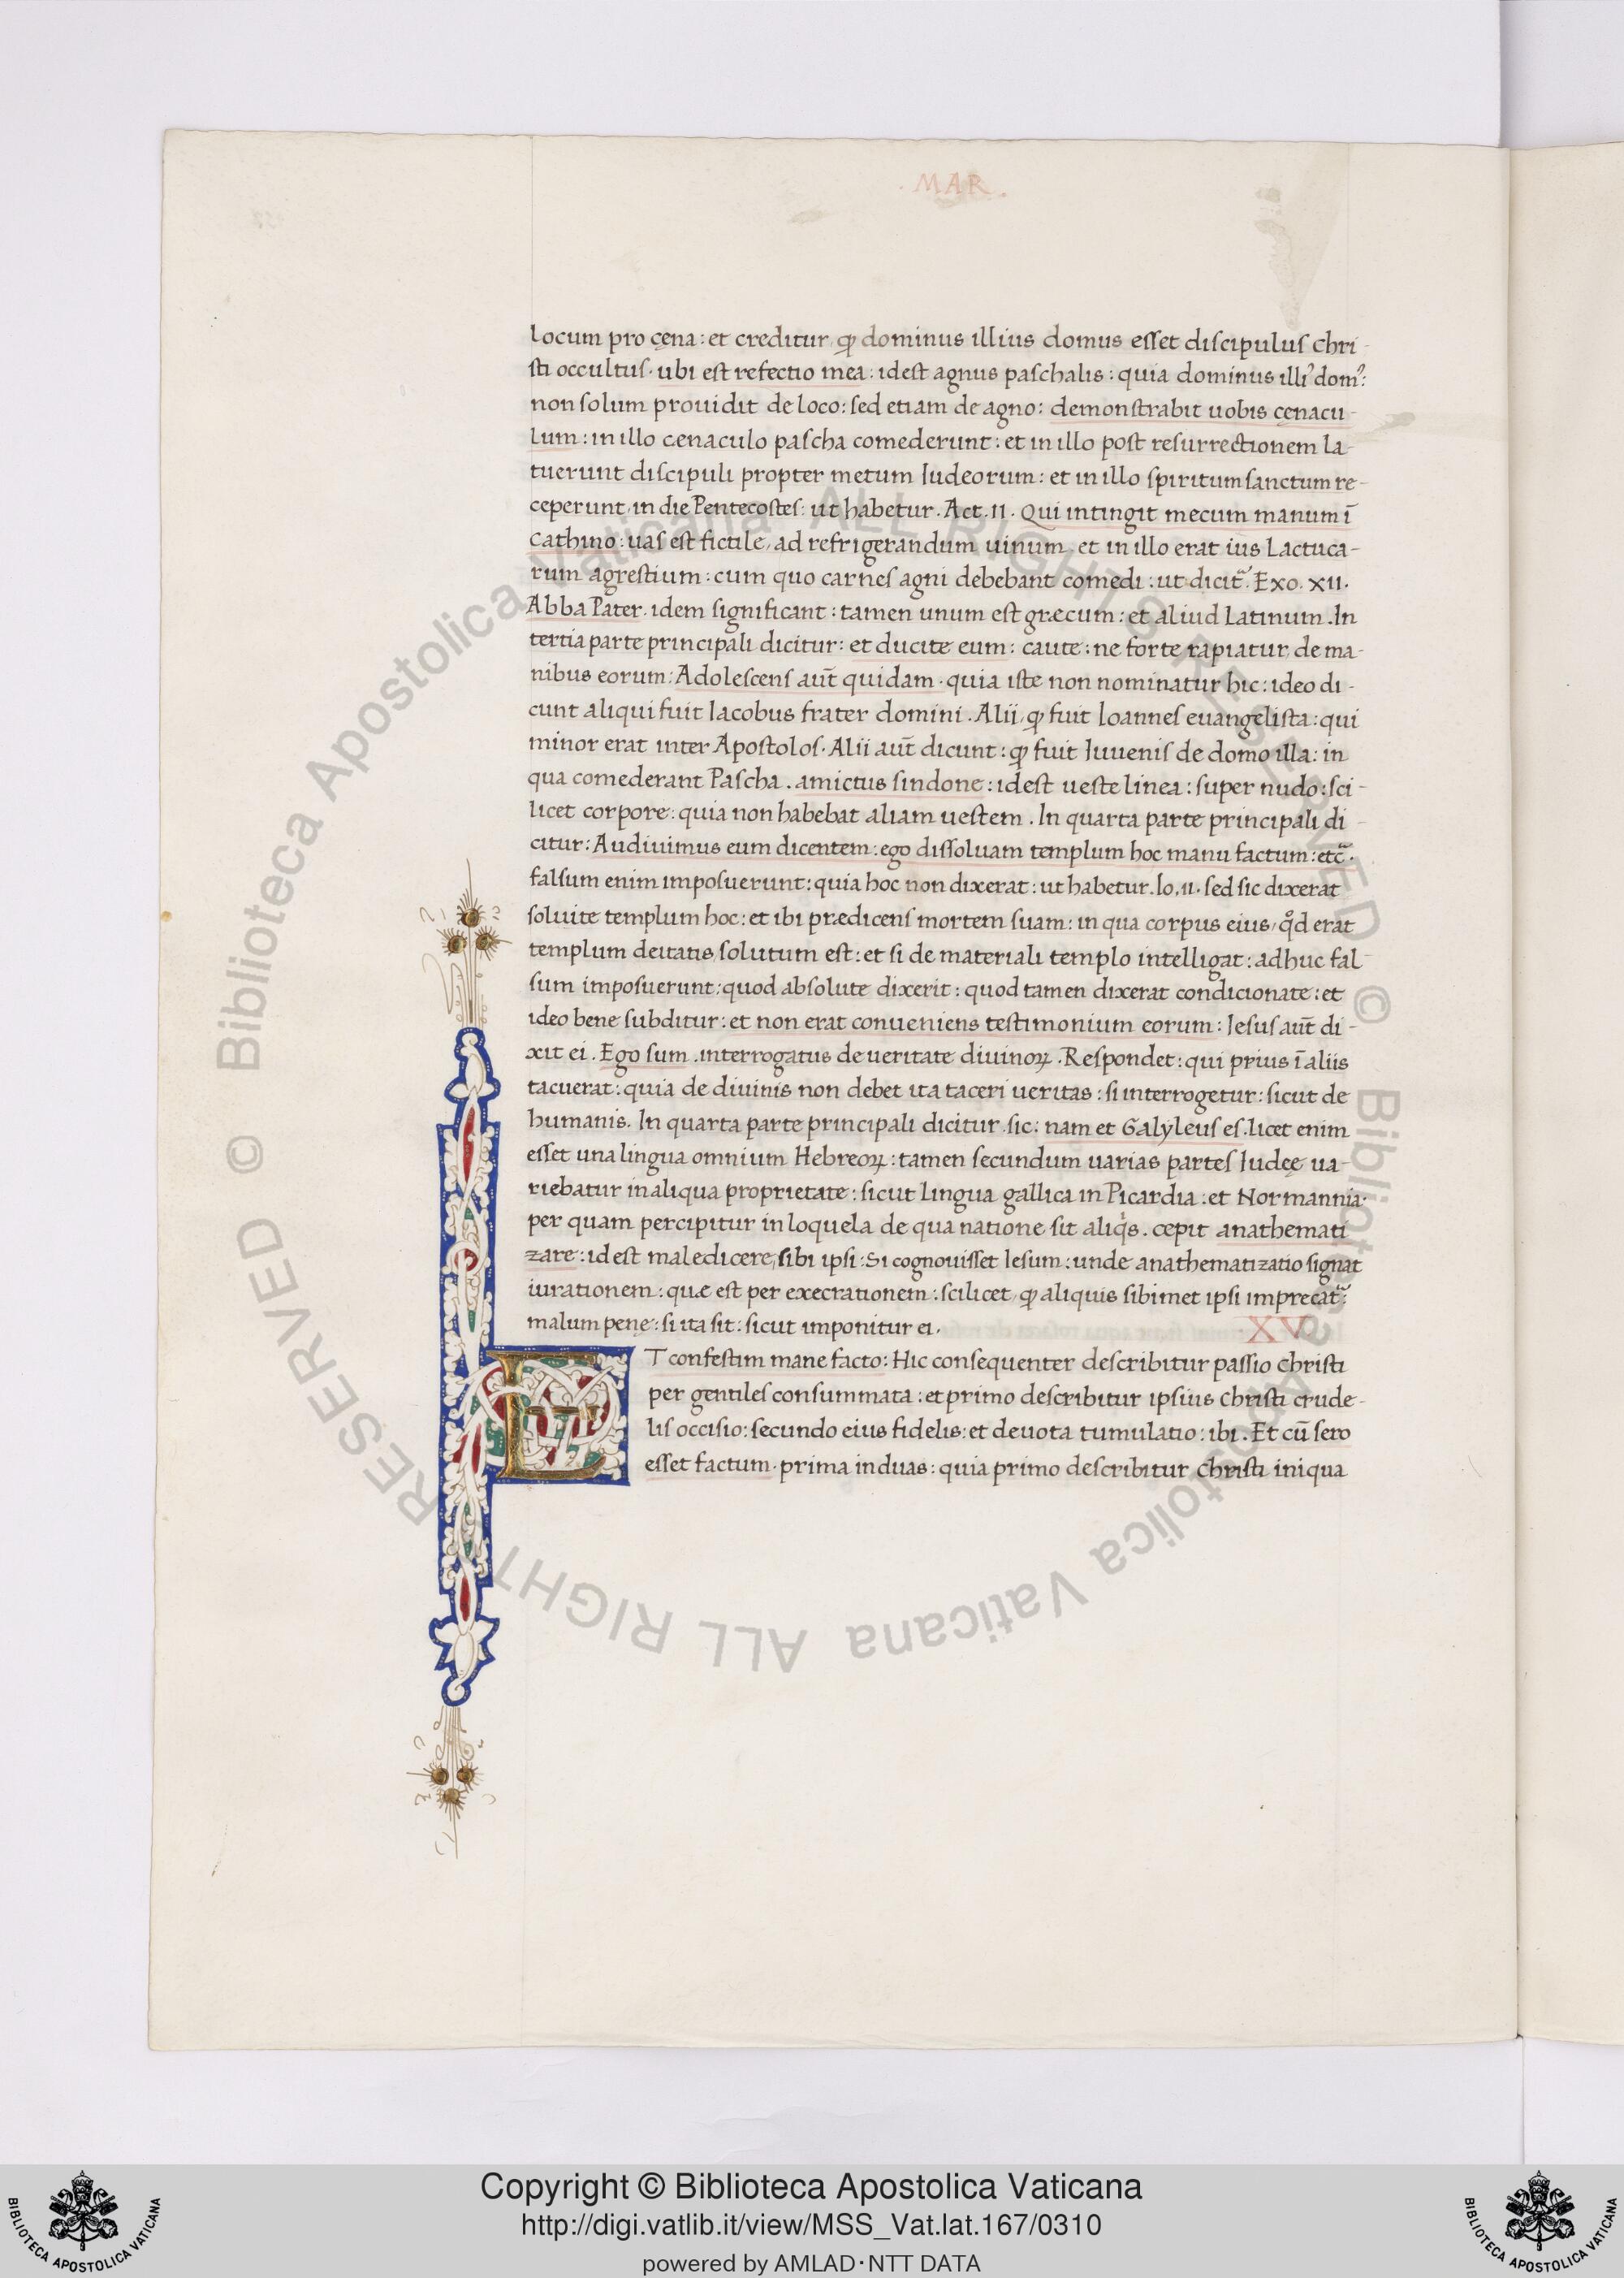 . MAR .
locum pro cęna: et creditur ꝙ dominus illius domus esset discipulus chri-
sti occultus. ubi est refectio mea: idest agnus paschalis: quia dominus illi' dom':
non solum prouidit de loco: sed etiam de agno: demonstrabit uobis cęnacu-
lum: in illo cenaculo pascha comederunt: et in illo post resurrectionem la-
tuerunt discipuli propter metum Iudeorum: et in illo spiritum sanctum re-
ceperunt. in die Pentecostes: ut habetur. Act. II. Qui intingit mecum manum ī
cathino: uas est fictile, ad refrigerandum uinum. et in illo erat ius Lactuca-
rum agrestium: cum quo carnes agni debebant comedi: ut dicit̃. Exo. XII.
Abba Pater. idem significant: tamen unum est græcum: et aliud Latinum. In
tertia parte principali dicitur: et ducite eum: caute: ne forte rapiatur de ma-
nibus eorum: Adolescens aut̃ quidam. quia iste non nominatur hic: ideo di-
cunt aliqui fuit Iacobus frater domini. Alii, ꝙ fuit Ioannes euangelista: qui
minor erat inter Apostolos. Alii aut̃ dicunt: ꝙ fuit Iuuenis de domo illa: in
qua comederant Pascha. amictus sindone: idest ueste linea: super nudo: sci-
licet corpore: quia non habebat aliam uestem. In quarta parte principali di-
citur: Audiuimus eum dicentem: ego dissoluam templum hoc manu factum: etc̃.
falsum enim imposuerunt: quia hoc non dixerat: ut habetur. Io. II. sed sic dixerat
soluite templum hoc: et ibi prædicens mortem suam: in qua corpus eius, qͦd erat
templum deitatis, solutum est: et si de materiali templo intelligat: adhuc fal-
sum imposuerunt: quod absolute dixerit: quod tamen dixerat condicionate: et
ideo bene subditur: et non erat conueniens testimonium eorum: Iesus aut̃ di-
xit ei. Ego sum. interrogatus de ueritate diuinoꝝ. Respondet: qui prius ī aliis
tacuerat: quia de diuinis non debet ita taceri ueritas: si interrogetur: sicut de
humanis. In quarta parte principali dicitur sic: nam et Galyleus es. licet enim
esset una lingua omnium Hebreoꝝ: tamen secundum uarias partes Iudeę ua-
riebatur in aliqua proprietate: sicut lingua gallica in Picardia: et Normannia.
per quam percipitur in loquela de qua natione sit aliqͥs. cepit anathemati
zare: idest maledicere, sibi ipsi: Si cognouisset Iesum: unde anathematizatio signat
iurationem: quæ est per execrationem: scilicet, ꝙ aliquis sibimet ipsi imprecat̃:
malum penę: si ita sit: sicut imponitur ei.
XV
ET confestim mane facto: Hic consequenter describitur passio christi
per gentiles consummata: et primo describitur ipsius christi crude-
lis occisio: secundo eius fidelis: et deuota tumulatio: ibi. Et cū sero
esset factum. prima in duas: quia primo describitur christi iniqua
© Biblioteca Apostolica Vaticana ALL RIGHTS RESERVED
© Biblioteca Apostolica Vaticana ALL RIGHTS RESERVED
BIBLIOTECA APOSTOLICA VATICANA
Copyright © Biblioteca Apostolica Vaticana
http://digi.vatlib.it/view/MSS_Vat.lat.167/0310
powered by AMLAD·NTT DATA
BIBLIOTECA APOSTOLICA VATICANA